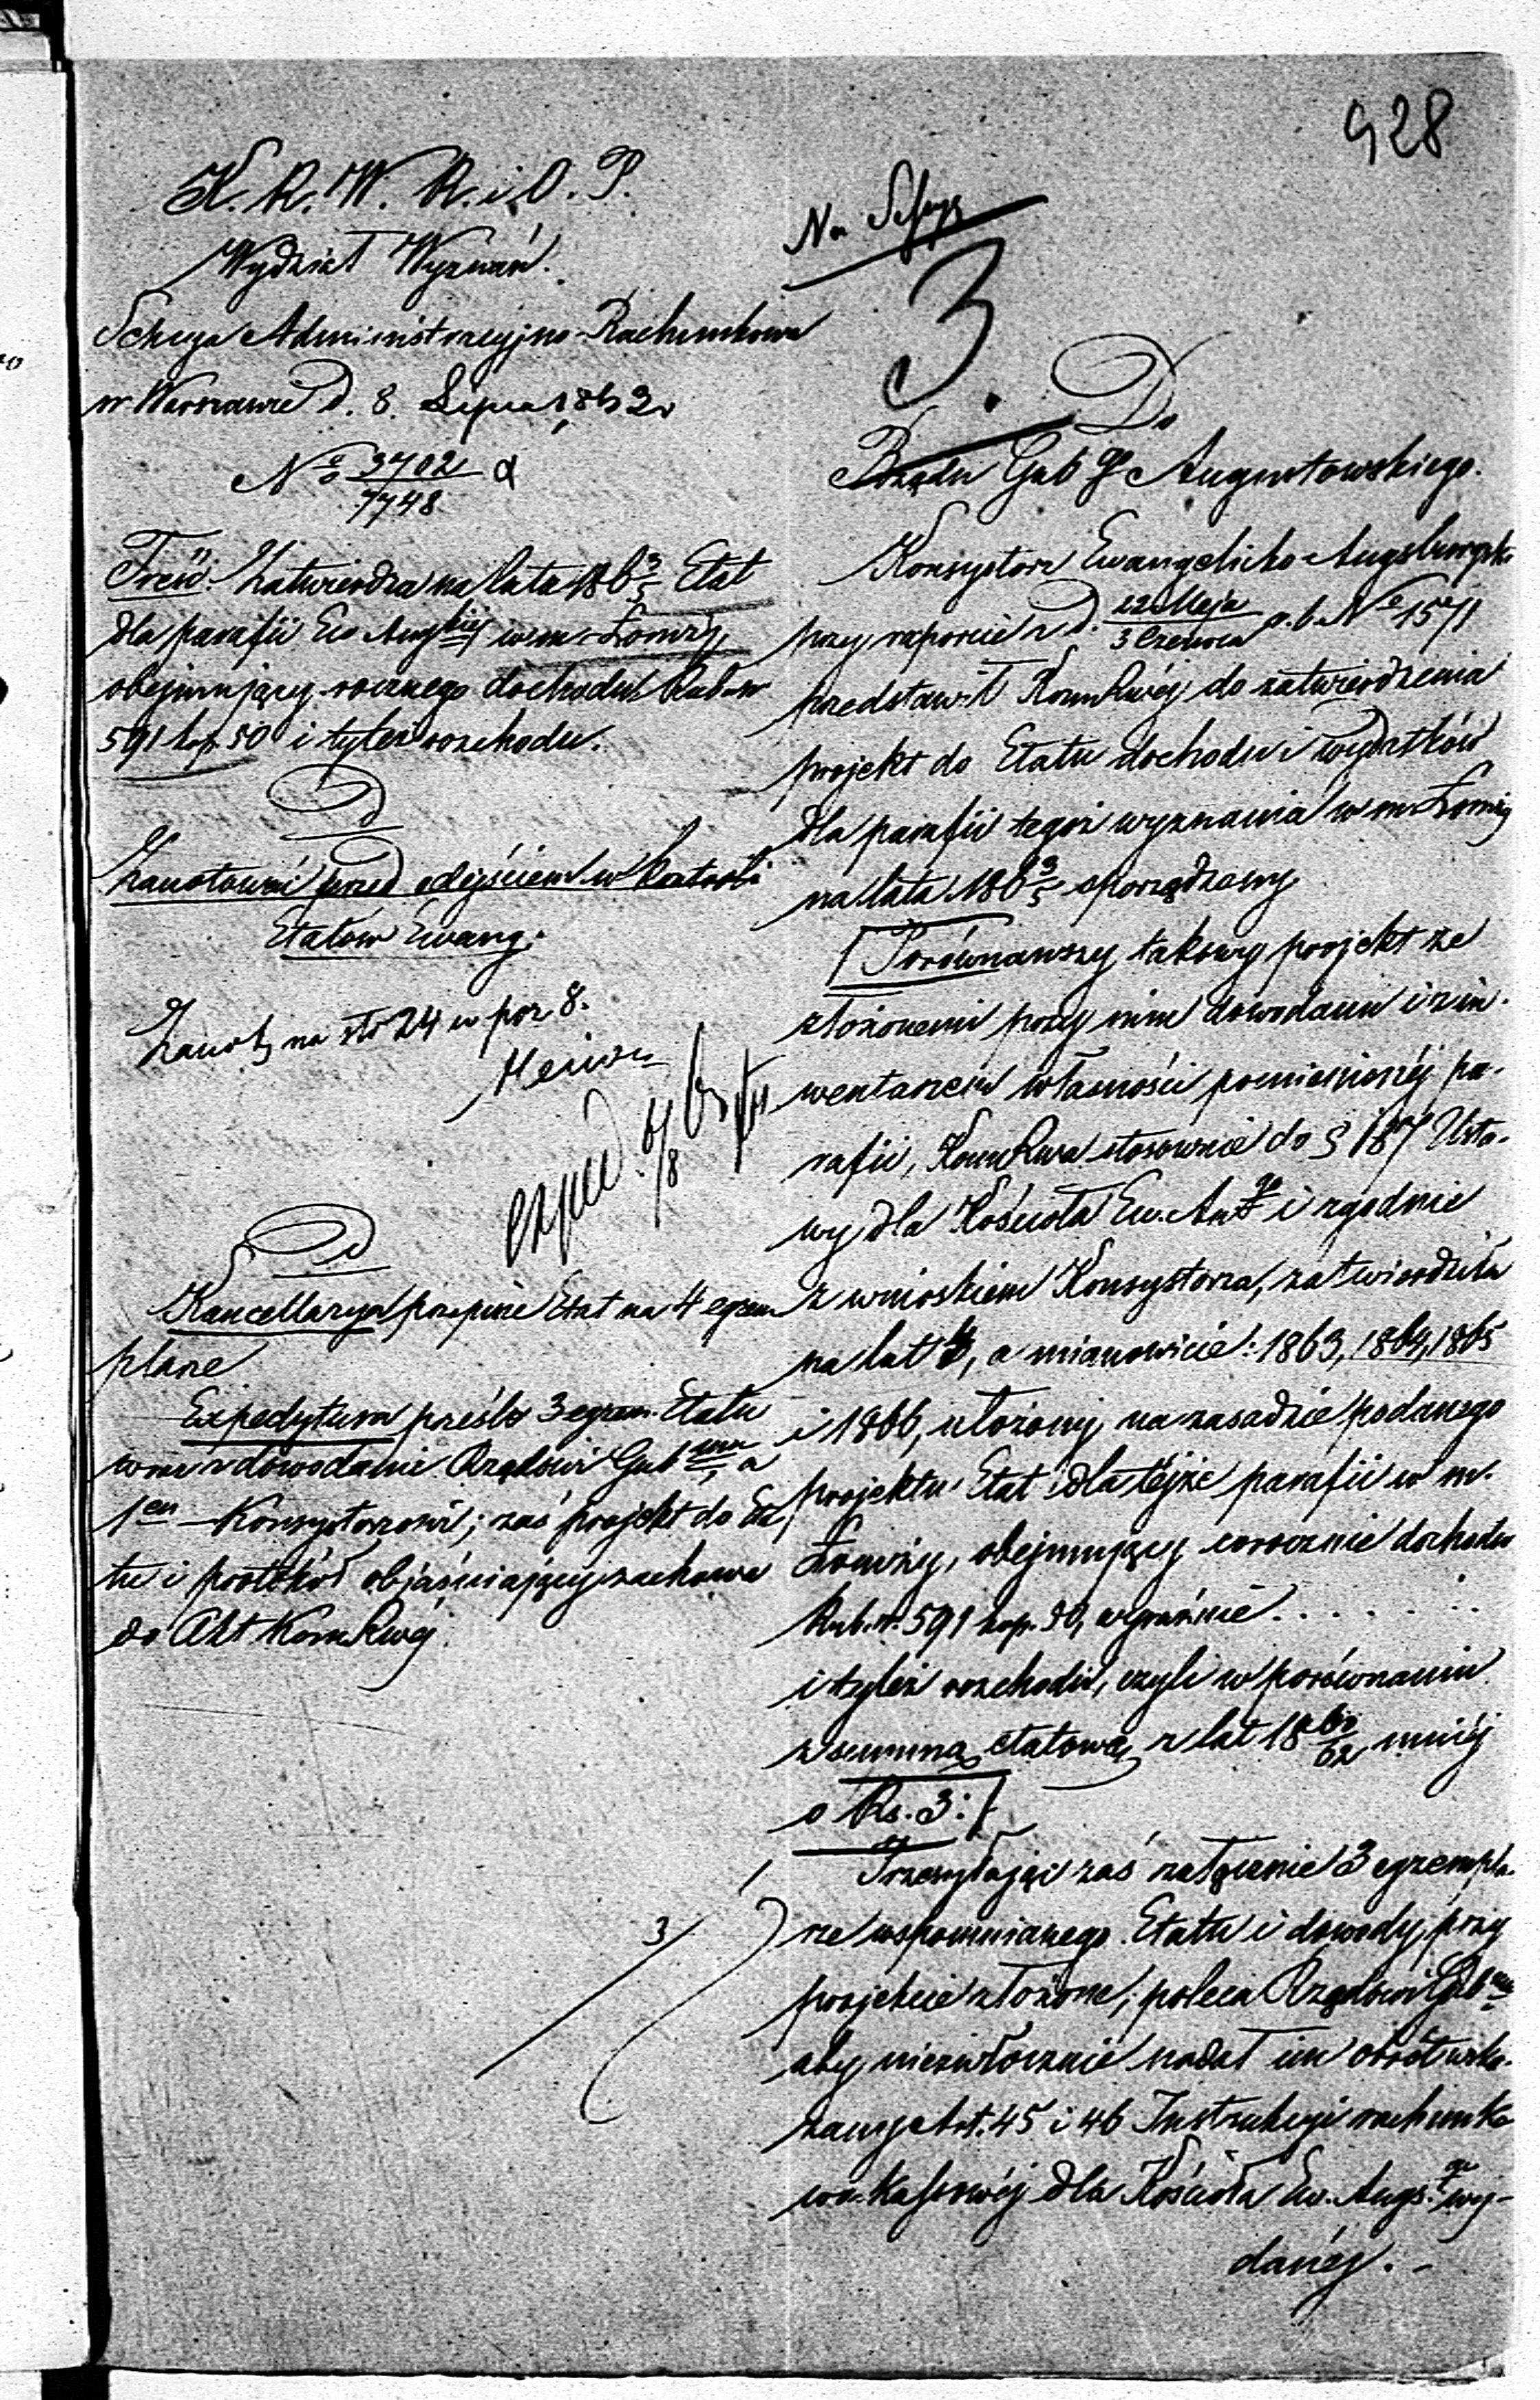 928
K. R. W. R. i O. P.
Wydział Wyznań.
Sekcya Administracyjno-Rachunkowa
w Warszawie d. 8. Lipca 1863 r
No 3702/7748 a
Treść: Zatwierdza na lata 186 3/5 Etat
dla parafii Ew Augkiej w m. Łomży,
obejmujący rocznego dochodu Rub. sr
591 kop 50 i tyleż rozchodu.
D
Zanotować przed odejściem w kontroli
Etatów Ewang.
Zanot na str 24 w poz 8.
exped. 6/8
D
Kancellarya przepisze Etat na 4 egzem
plarze
Expedytura prześle 3 egzem. Etatu
wraz z dowodami Rządowi Gubmu, a
1en Konsystorzowi; zaś projekt do Eta
tu i protokół objaśniający zachowa
do Akt Kom Rwéj.
Na Sessyę
3.
Do
Rządu Gub go Augustowskiego.
Konsystorz Ewangelicko-Augsburgski
przy raporcie z d. 22 Maja/3 Czerwca r. b. No 1571
przedstawił Kom Rwéj do zatwierdzenia
projekt do Etatu dochodu i wydatków
dla parafii tegoż wyznania w m. Łomży
na lata 186 3/5 sporządzony
[Porównawszy takowy projekt ze
złożonemi przy nim dowodami i z in-
wentarzem własności pomienionéj pa-
rafii, Kom Rwa stosownie do § 187 Usta-
wy dla Kościoła Ew. Au go i zgodnie
z wnioskiem Konsystorza, zatwierdziła
na lat 4, a mianowicie: 1863, 1864, 1865
i 1866, ułożony na zasadzie podanego
projektu Etat dla tejże parafii w m.
Łomży, obejmujący corocznie dochodu
Rub. sr. 591 kop. 50, wyraźnie . . . . . . .
i tyleż rozchodu, czyli w porównaniu
z summą etatową z lat 18 60/62 mniéj
o Rs. 3:]
Przesyłając zaś załącznie 3 egzempla-
3/
rze wspomnianego Etatu i dowody przy
projekcie złożone; poleca Rządowi Gubmu
aby niezwłocznie nadał im obrót wska-
zany Art. 45 i 46 Instrukcyi rachunko
wo-kassowéj dla Kościoła Ew. Augs. go wy-
danéj. -